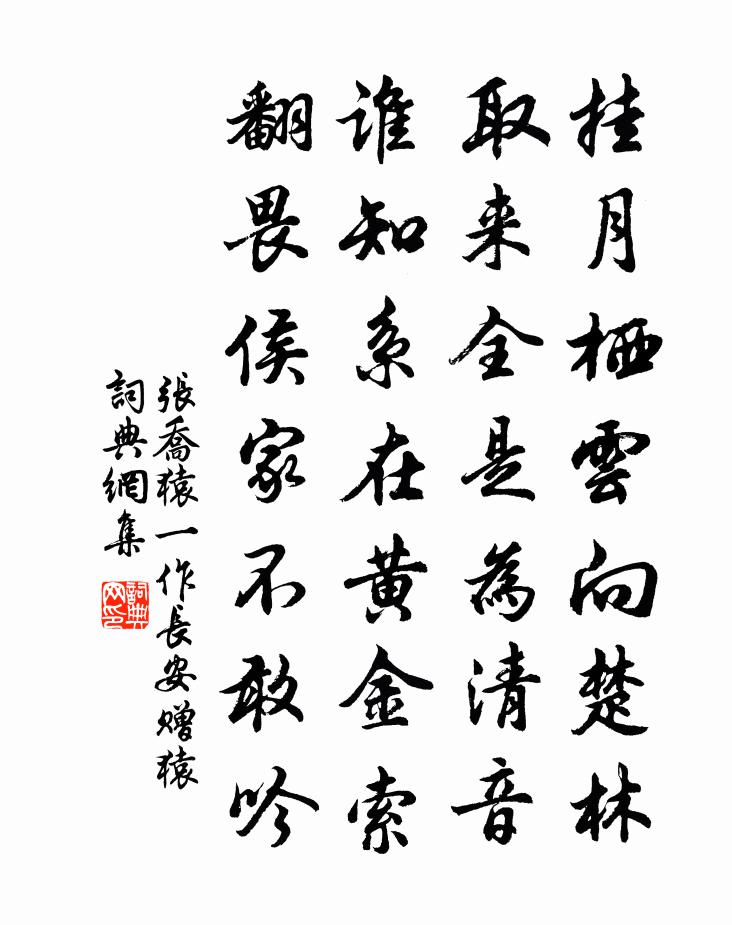 挂月栖雲向楚林
取来全是為清音
谁知系在黄金索
翻畏侯家不敢吟
張喬猿一作長安贈猿
詞典網集
詞典网印